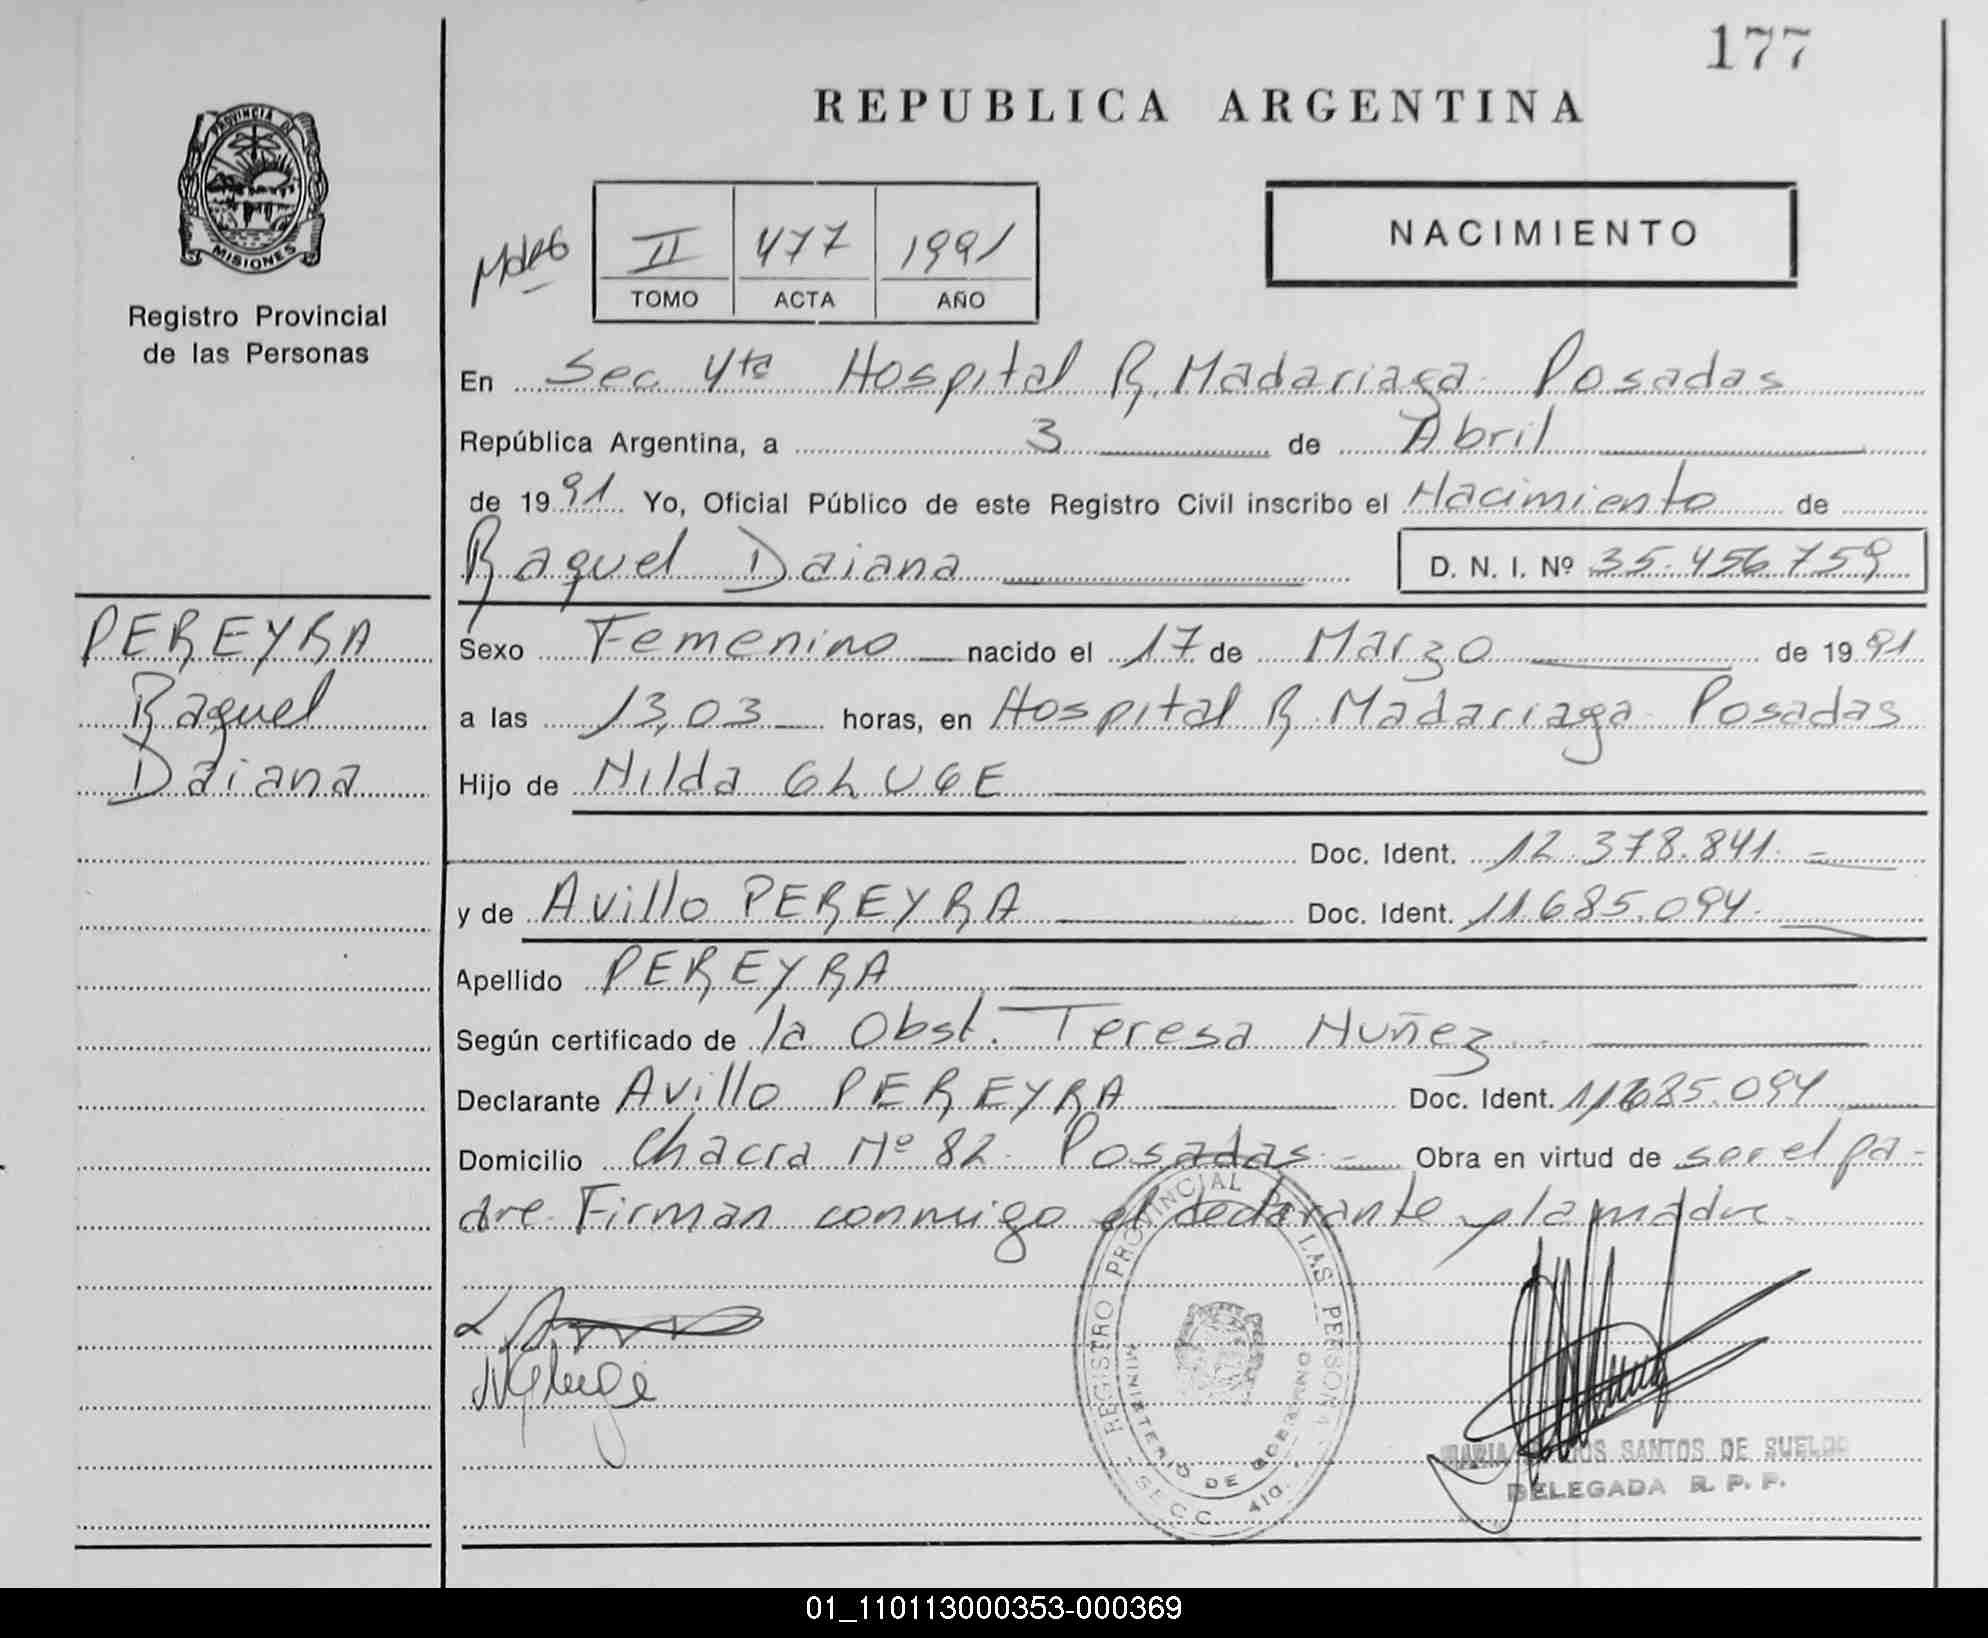 177
REPUBLICA ARGENTINA
PROVINCIA DE
MISIONES
Registro Provincial
de las Personas
II 477 1991
TOMO ACTA AÑO
NACIMIENTO
En Sec. 4ta Hospital R. Madariaga Posadas
República Argentina, a 3 de Abril
de 1991 Yo, Oficial Público de este Registro Civil inscribo el Nacimiento de
Raquel Daiana D. N. I. Nº 35.456.759
PEREYRA
Raquel
Daiana
Sexo Femenino nacido el 17 de Marzo de 1991
a las 13,03 horas, en Hospital R. Madariaga Posadas
Hijo de Nilda GLUGE
Doc. Ident. 12.378.841.-
y de Avillo PEREYRA Doc. Ident. 11.685.094.
Apellido PEREYRA
Según certificado de la Obst. Teresa Nuñez.-
Declarante Avillo PEREYRA Doc. Ident. 11.685.094
Domicilio Chacra Nº 82. Posadas.- Obra en virtud de ser el pa-
dre. Firman conmigo el declarante y la madre.
NGluge
REGISTRO PROVINCIAL DE LAS PERSONAS
MINISTERIO DE GOBIERNO
SECC. 4ta.
MARIA SANTOS DE SUELDO
DELEGADA R. P. P.
01_110113000353-000369